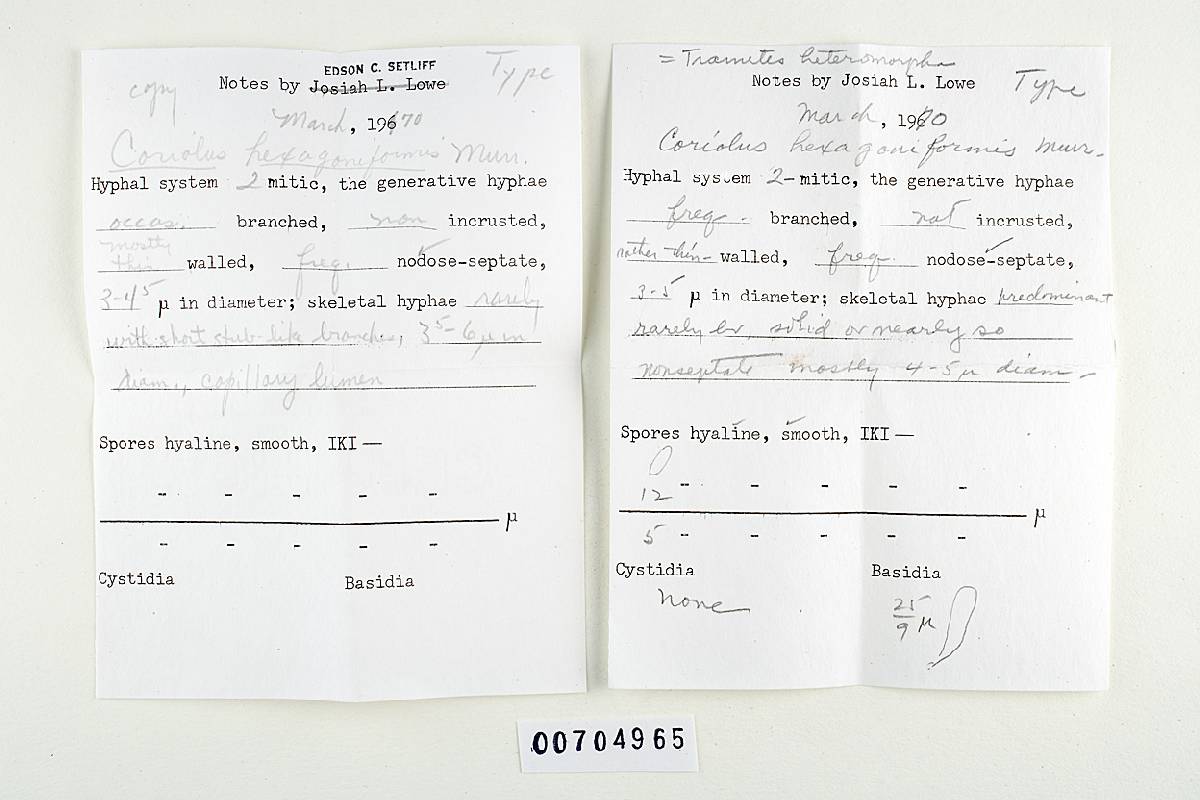 copy
EDSON C. SETLIFF
Notes by Josiah L. Lowe
Type
March, 1970
Coriolus hexagoniformis Murr.
Hyphal system 2 mitic, the generative hyphae
occas. branched, non incrusted,
mostly
thin walled, freq. nodose-septate,
3-4⁵ µ in diameter; skeletal hyphae rarely
with short stub-like branches, 3⁵-6 µm
diam., capillary lumen
Spores hyaline, smooth, IKI —
- - - - -
µ
- - - - -
Cystidia Basidia
= Trametes heteromorpha
Notes by Josiah L. Lowe
Type
March, 1970
Coriolus hexagoniformis Murr.
Hyphal system 2-mitic, the generative hyphae
freq. branched, not incrusted,
rather thin-walled, freq. nodose-septate,
3-5 µ in diameter; skeletal hyphae predominant
rarely br, solid or nearly so
nonseptate mostly 4-5 µ diam-
Spores hyaline, smooth, IKI —
12 - - - - -
µ
5 - - - - -
Cystidia Basidia
none 25
9 µ
00704965